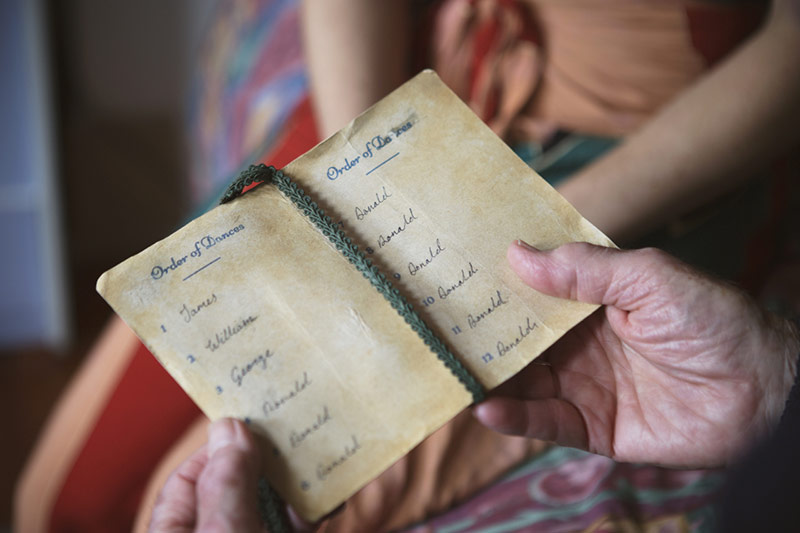 Order of Dances
1 James
2 William
3 George
Donald
Donald
6 Donald
Order of Dances
Donald
8 Donald
9 Donald
10 Donald
11 Donald
12 Donald